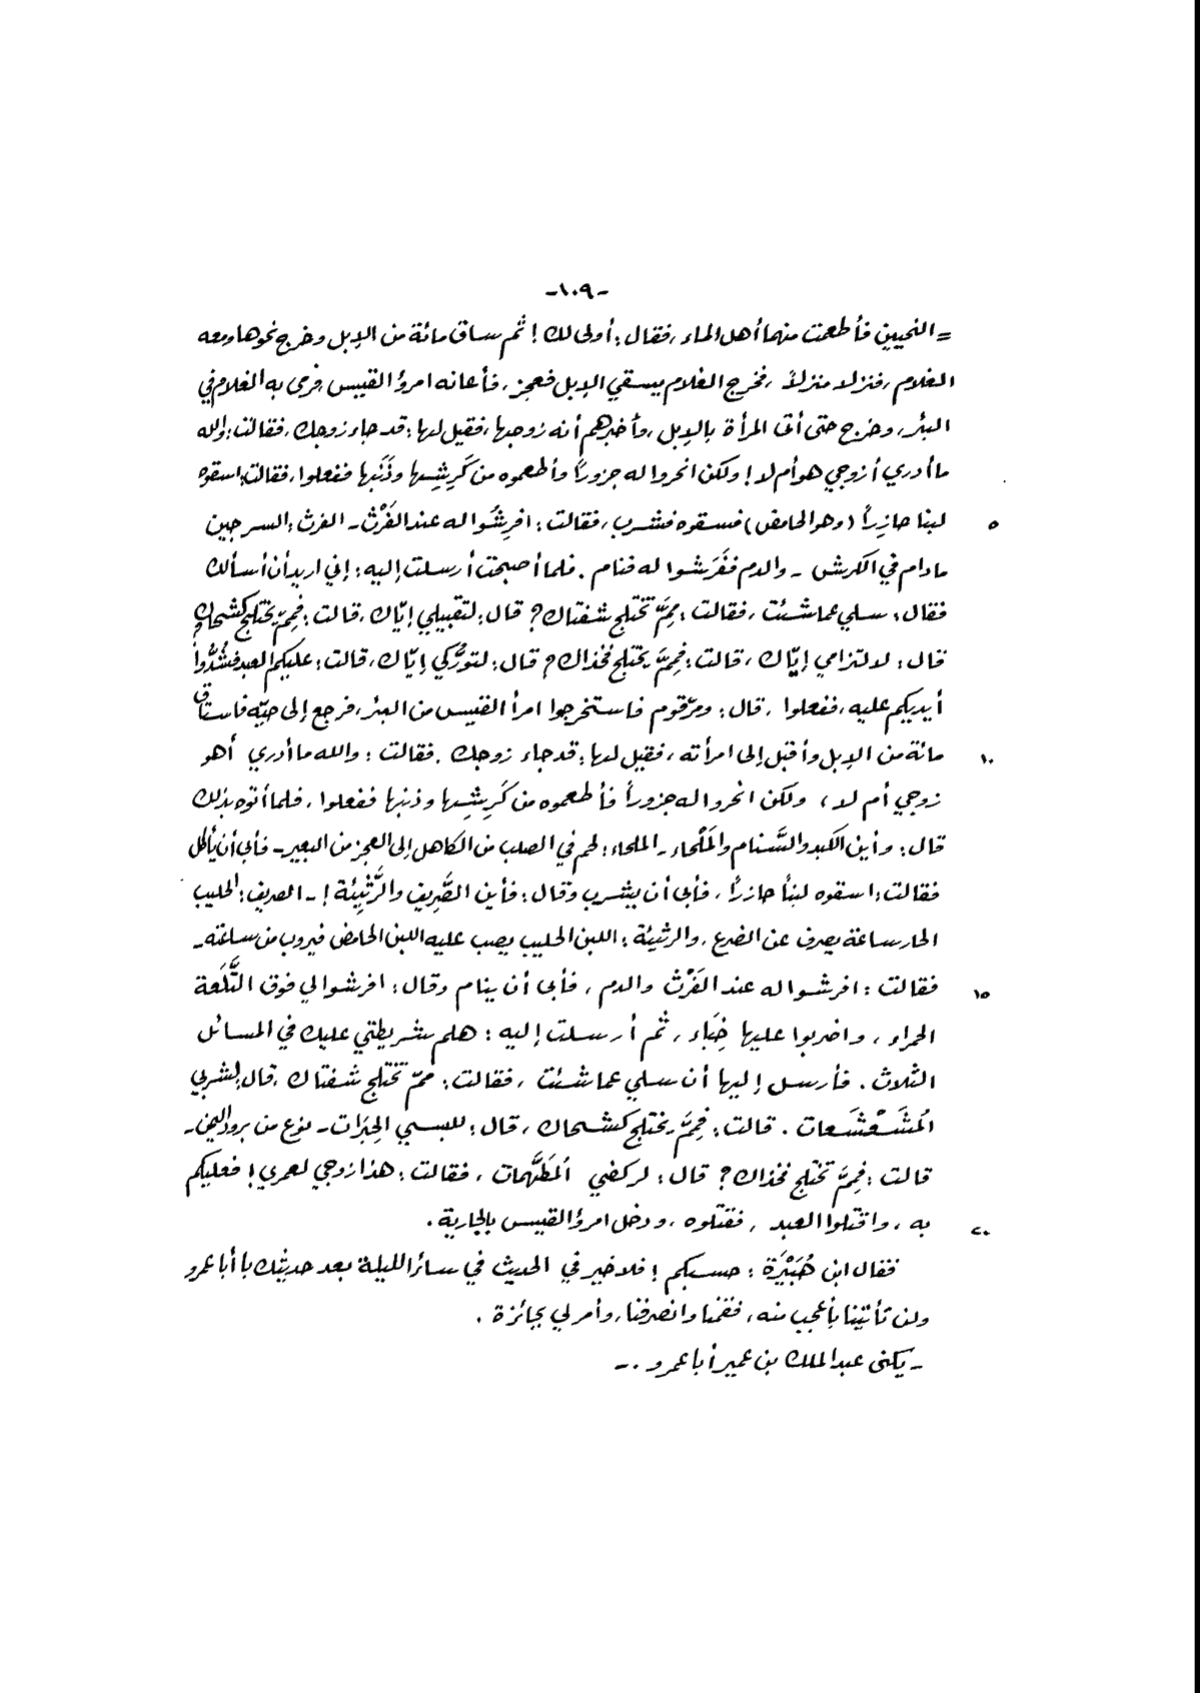 -١٠٩-
= النحيين فأطعمت منهما أهل الماء، فقال: أولى لك! ثم ساق مائة من الإبل وخرج نحوها ومعه
الغلام، فنزلا منزلاً، فخرج الغلام يسقي الإبل فعجز، فأعانه امرؤ القيس، فرمى به الغلام في
البئر، وخرج حتى أتى المرأة بالإبل، وأخبرهم أنه زوجها، فقيل لها: قد جاء زوجك، فقالت: والله
ما أدري أزوجي هو أم لا! ولكن انحروا له جزوراً وأطعموه من كَرِشِها وذَنَبها ففعلوا، فقالت: اسقوه
٥ لبنا حازِراً (وهو الحامض) فسقوه فشرب، فقالت: افرِشُوا له عند الفَرْث ـ الفرث: السرجين
مادام في الكرش ـ والدم ففَرَشوا له فنام. فلما أصبحت أرسلت إليه: إني اريد أن أسألك
فقال: سلي عما شئت، فقالت: مِمَّ تختلج شفتاك؟ قال: لتقبيلي إيّاك، قالت: فمِمّ يختلج كشحاك؟
قال: لالتزامي إيّاك، قالت: فمِمَّ يختلج فخذاك؟ قال: لتورُّكي إيّاك، قالت: عليكم العبد فشُدُّوا
أيديكم عليه، ففعلوا، قال: ومرّ قوم فاستخرجوا امرأ القيس من البئر، فرجع إلى حيّه فاستاق
١٠ مائة من الإبل وأقبل إلى امرأته، فقيل لها: قد جاء زوجك. فقالت: والله ما أدري أهو
زوجي أم لا، ولكن انحروا له جزوراً فأطعموه من كَرِشِها وذنبها ففعلوا، فلما أتوه بذلك
قال: وأين الكبد والسَّنام والمَلْحاء ـ الملحاء: لحم في الصلب من الكاهل إلى العجز من البعير ـ فأبى أن يأكل
فقالت: اسقوه لبناً حازراً، فأبى أن يشرب وقال: فأين الصَّرِيف والرَّثِيئة! ـ الصريف: الحليب
الحار ساعة يصرف عن الضرع، والرثيئة: اللبن الحليب يصب عليه اللبن الحامض فيروب من ساعته ـ
١٥ فقالت: افرشوا له عند الفَرْث والدم، فأبى أن ينام وقال: افرشوا لي فوق التَّلعَة
الحمراء، واضربوا عليها خِبَاء، ثم أرسلت إليه: هلم شريطتي عليك في المسائل
الثلاث. فأرسل إليها أن سلي عما شئت، فقالت: ممّ تختلج شفتاك، قال: لشربي
المُشَعْشَعات. قالت: فمِمَّ يختلج كشحاك، قال: للبسي الحِبَرات ـ نوع من برود اليمن ـ
قالت: فمِمَّ تختلج فخذاك؟ قال: لركضي المُطَهَّمات، فقالت: هذا زوجي لعمري! فعليكم
٢٠ به، واقتلوا العبد، فقتلوه، ودخل امرؤ القيس بالجارية.
فقال ابن هُبَيْرَة: حسبكم! فلا خير في الحديث في سائر الليلة بعد حديثك يا أبا عمرو
ولن تأتينا بأعجب منه، فقمنا وانصرفنا، وأمر لي بجائزة.
ـ يكنى عبد الملك بن عمير أبا عمرو. ـ